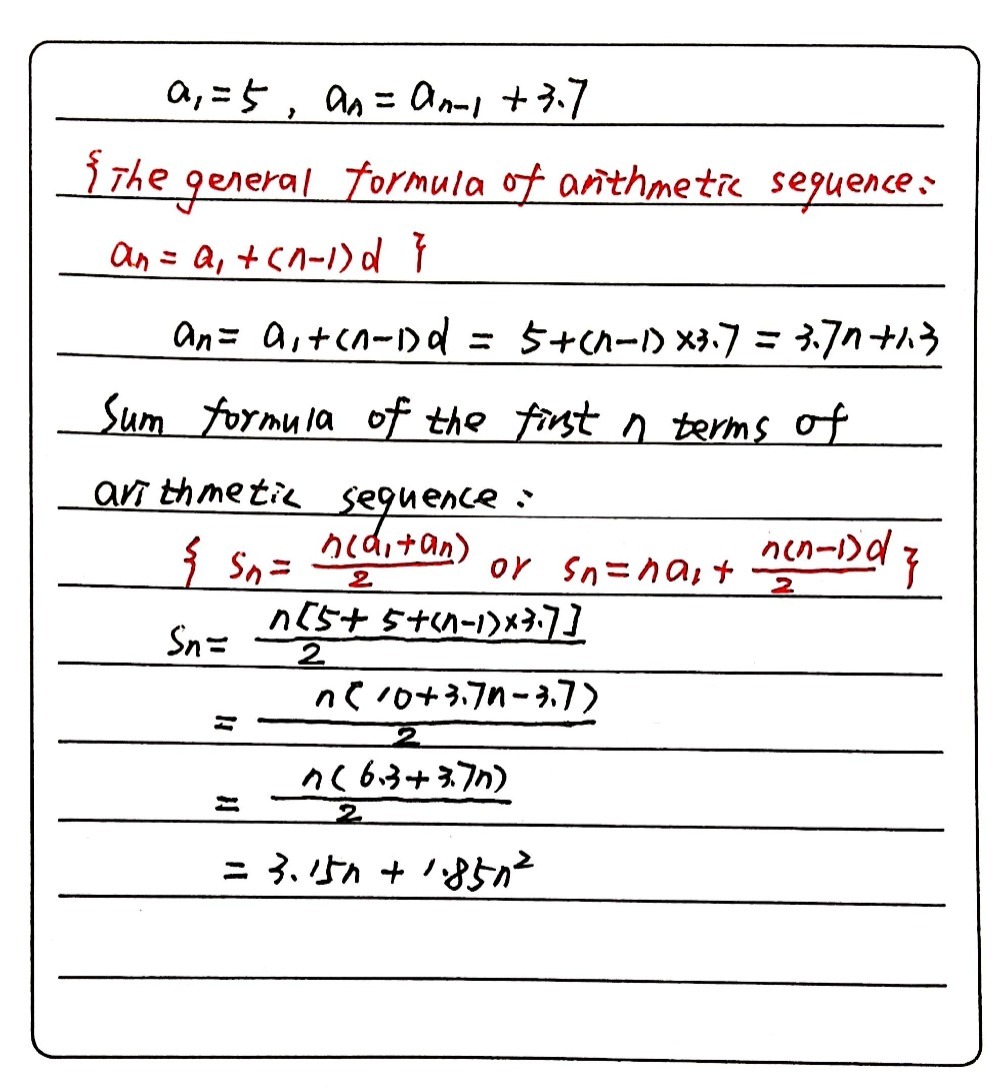 a₁=5, aₙ=aₙ₋₁+3.7
{The general formula of arithmetic sequence:
aₙ=a₁+(n-1)d}
aₙ=a₁+(n-1)d=5+(n-1)×3.7=3.7n+1.3
Sum formula of the first n terms of
arithmetic sequence:
{Sₙ=n(a₁+aₙ)/2 or Sₙ=na₁+n(n-1)d/2}
Sₙ=n[5+5+(n-1)×3.7]/2
=n(10+3.7n-3.7)/2
=n(6.3+3.7n)/2
=3.15n+1.85n²